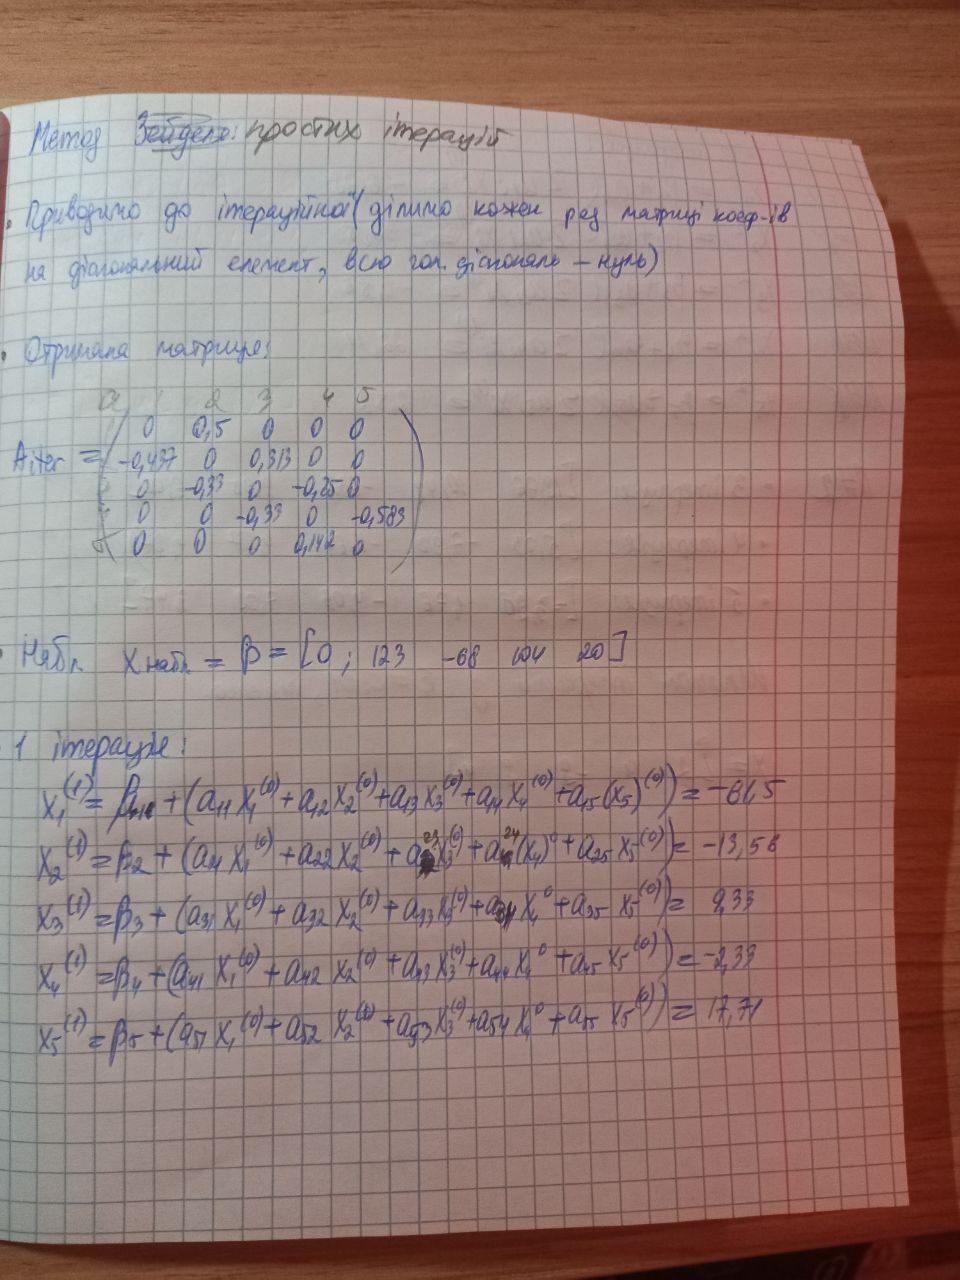 Метод Зейделя: простих ітерацій
Приводимо до ітераційної (ділимо кожен ряд матриці коеф-ів
на діагональний елемент, всю гол. діагональ – нуль)
Отримана матриця:
a 1 2 3 4 5
0 0,5 0 0 0
Aiter = -0,437 0 0,313 0 0
0 -0,33 0 -0,25 0
0 0 -0,33 0 -0,583
0 0 0 0,142 0
Набл. X набл = β = [0; 123 -68 104 20]
1 ітерація:
X₁⁽¹⁾ = β₁ + (a₁₁X₁⁽⁰⁾ + a₁₂X₂⁽⁰⁾ + a₁₃X₃⁽⁰⁾ + a₁₄X₄⁽⁰⁾ + a₁₅(X₅)⁽⁰⁾) = -61,5
X₂⁽¹⁾ = β₂ + (a₂₁X₁⁽⁰⁾ + a₂₂X₂⁽⁰⁾ + a₂₃X₃⁽⁰⁾ + a₂₄(X₄)⁰ + a₂₅X₅⁽⁰⁾) = -13,58
X₃⁽¹⁾ = β₃ + (a₃₁X₁⁽⁰⁾ + a₃₂X₂⁽⁰⁾ + a₃₃X₃⁽⁰⁾ + a₃₄X₄⁰ + a₃₅X₅⁽⁰⁾) = 2,33
X₄⁽¹⁾ = β₄ + (a₄₁X₁⁽⁰⁾ + a₄₂X₂⁽⁰⁾ + a₄₃X₃⁽⁰⁾ + a₄₄X₄⁰ + a₄₅X₅⁽⁰⁾) = -2,33
X₅⁽¹⁾ = β₅ + (a₅₁X₁⁽⁰⁾ + a₅₂X₂⁽⁰⁾ + a₅₃X₃⁽⁰⁾ + a₅₄X₄⁰ + a₅₅X₅⁽⁰⁾) = 17,71